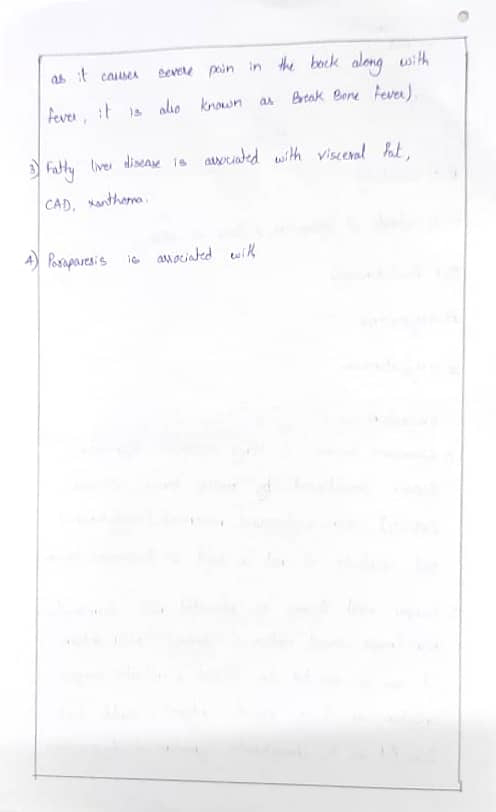 as it causes severe pain in the back along with
fever, it is also known as Break Bone Fever).
3) Fatty liver disease is associated with visceral fat,
CAD, xanthoma.
4) Paraparesis is associated with